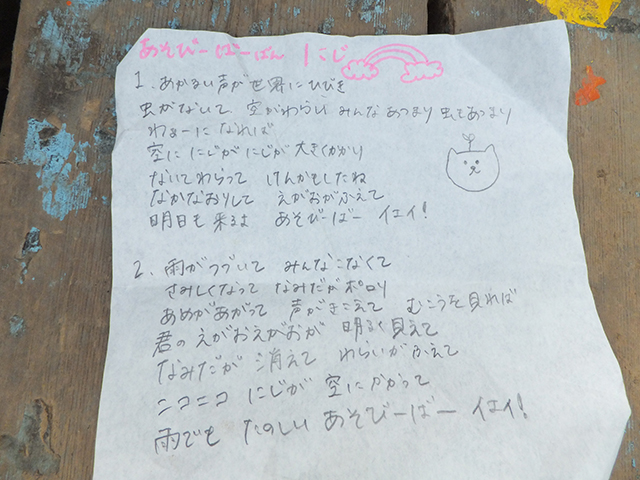 あそびーばーばん にじ
1. あかるい声が世界にひびき
虫がないて 空がわらい みんなあつまり 虫もあつまり
わぁーに なれば
空に にじが にじが 大きくかかり
ないてわらって けんかもしたね
なかなおりして えがおがふえて
明日も来るよ あそびーばー イェイ!
2. 雨がつづいて みんなこなくて
さみしくなって なみだがポロリ
あめがあがって 声がきこえて むこうを見れば
君のえがおえがおが 明るく見えて
なみだが 消えて わらいがふえて
ニコニコ にじが 空にかかって
雨でも たのしい あそびーばー イェイ!